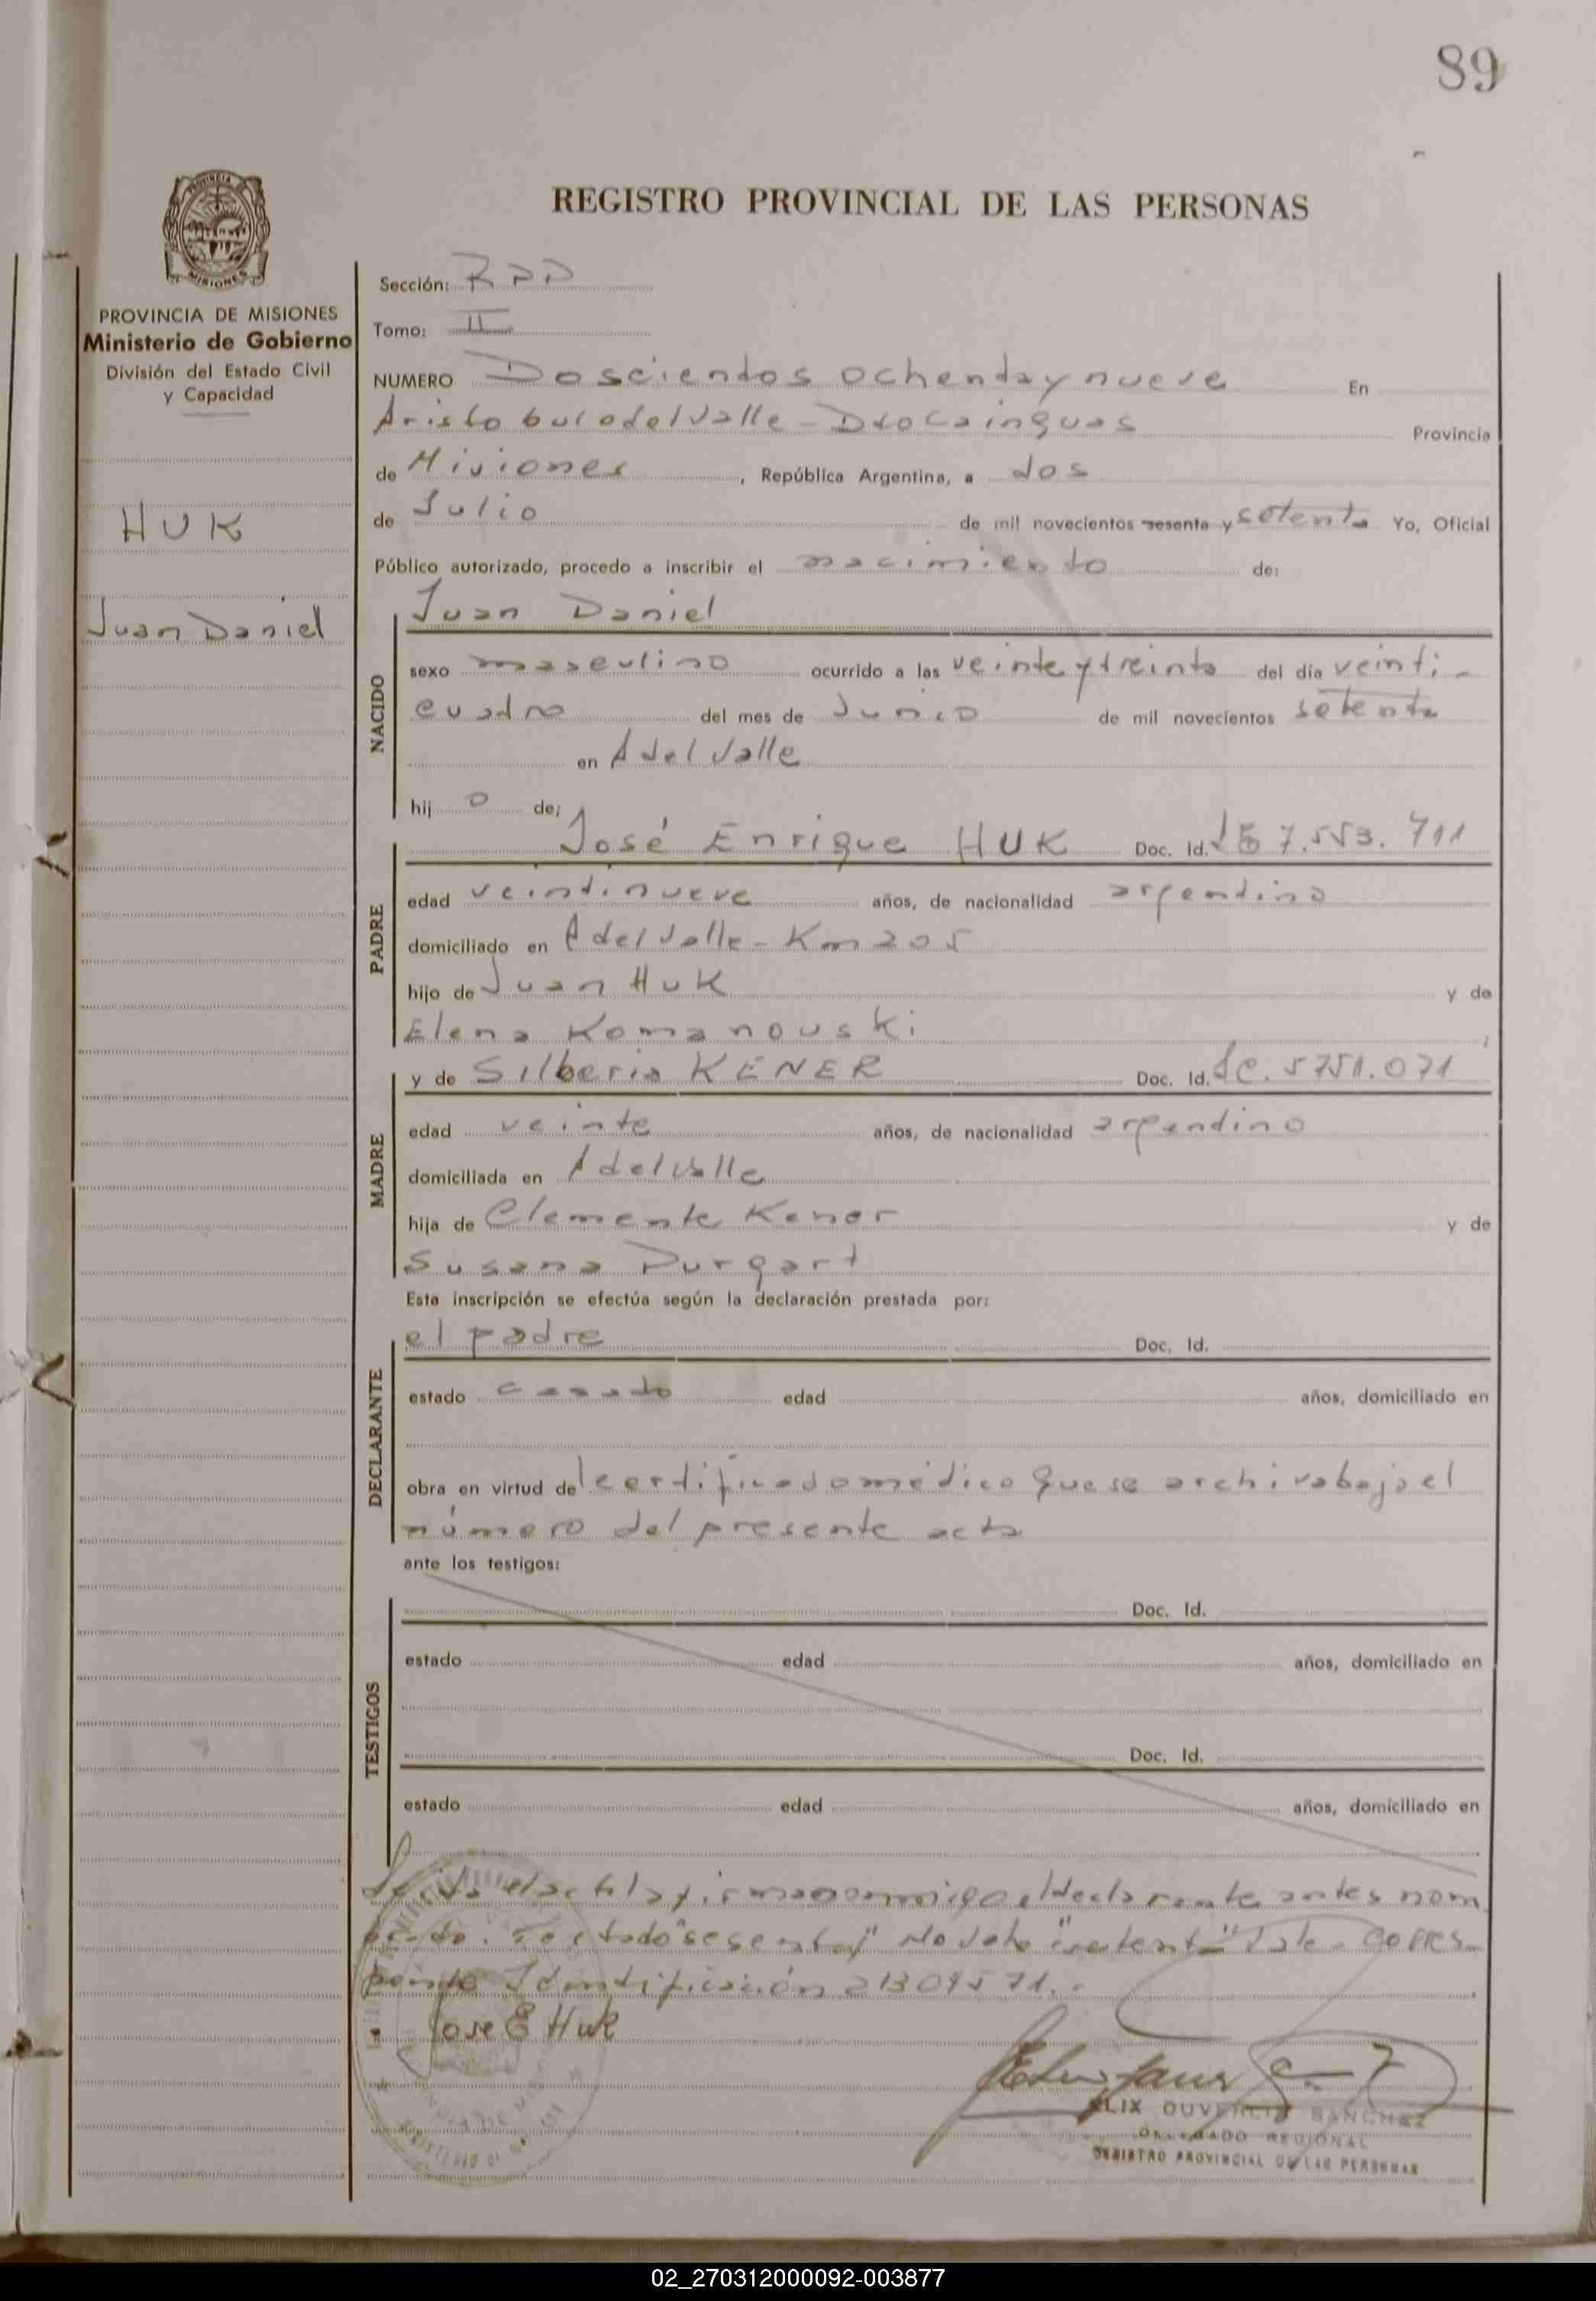 89
REGISTRO PROVINCIAL DE LAS PERSONAS
PROVINCIA DE MISIONES
Ministerio de Gobierno
División del Estado Civil
y Capacidad
HUK
Juan Daniel
Sección: RPP
Tomo: II
NUMERO Doscientos ochenta y nueve En
Aristobulo del Valle - Dto Cainguas Provincia
de Misiones, República Argentina, a dos
de Julio de mil novecientos sesenta y setenta Yo, Oficial
Público autorizado, procedo a inscribir el nacimiento de:
NACIDO
Juan Daniel
sexo masculino ocurrido a las veinte y treinta del día veinti-
cuatro del mes de Junio de mil novecientos setenta
en A del Valle
hijo de:
PADRE
José Enrique HUK Doc. Id. LE 7.553.711
edad veintinueve años, de nacionalidad argentino
domiciliado en A del Valle - Km 205
hijo de Juan Huk y de
Elena Komanouski
MADRE
y de Silberia KENER Doc. Id. LC. 5751.071
edad veinte años, de nacionalidad argentino
domiciliada en A del Valle
hija de Clemente Kener y de
Susana Purgart
Esta inscripción se efectúa según la declaración prestada por:
DECLARANTE
el padre Doc. Id.
estado casado edad años, domiciliado en
obra en virtud del certificado médico que se archiva bajo el
número del presente acta
ante los testigos:
TESTIGOS
Doc. Id.
estado edad años, domiciliado en
Doc. Id.
estado edad años, domiciliado en
Leída el acta la firman conmigo el declarante antes nom
brado. Testado "sesenta y" No vale "setenta" Vale. Corres-
ponde Identificación 21304571.-
Jose E Huk
FELIX OUVERCIO SANCHEZ
DELEGADO REGIONAL
REGISTRO PROVINCIAL DE LAS PERSONAS
02_270312000092-003877